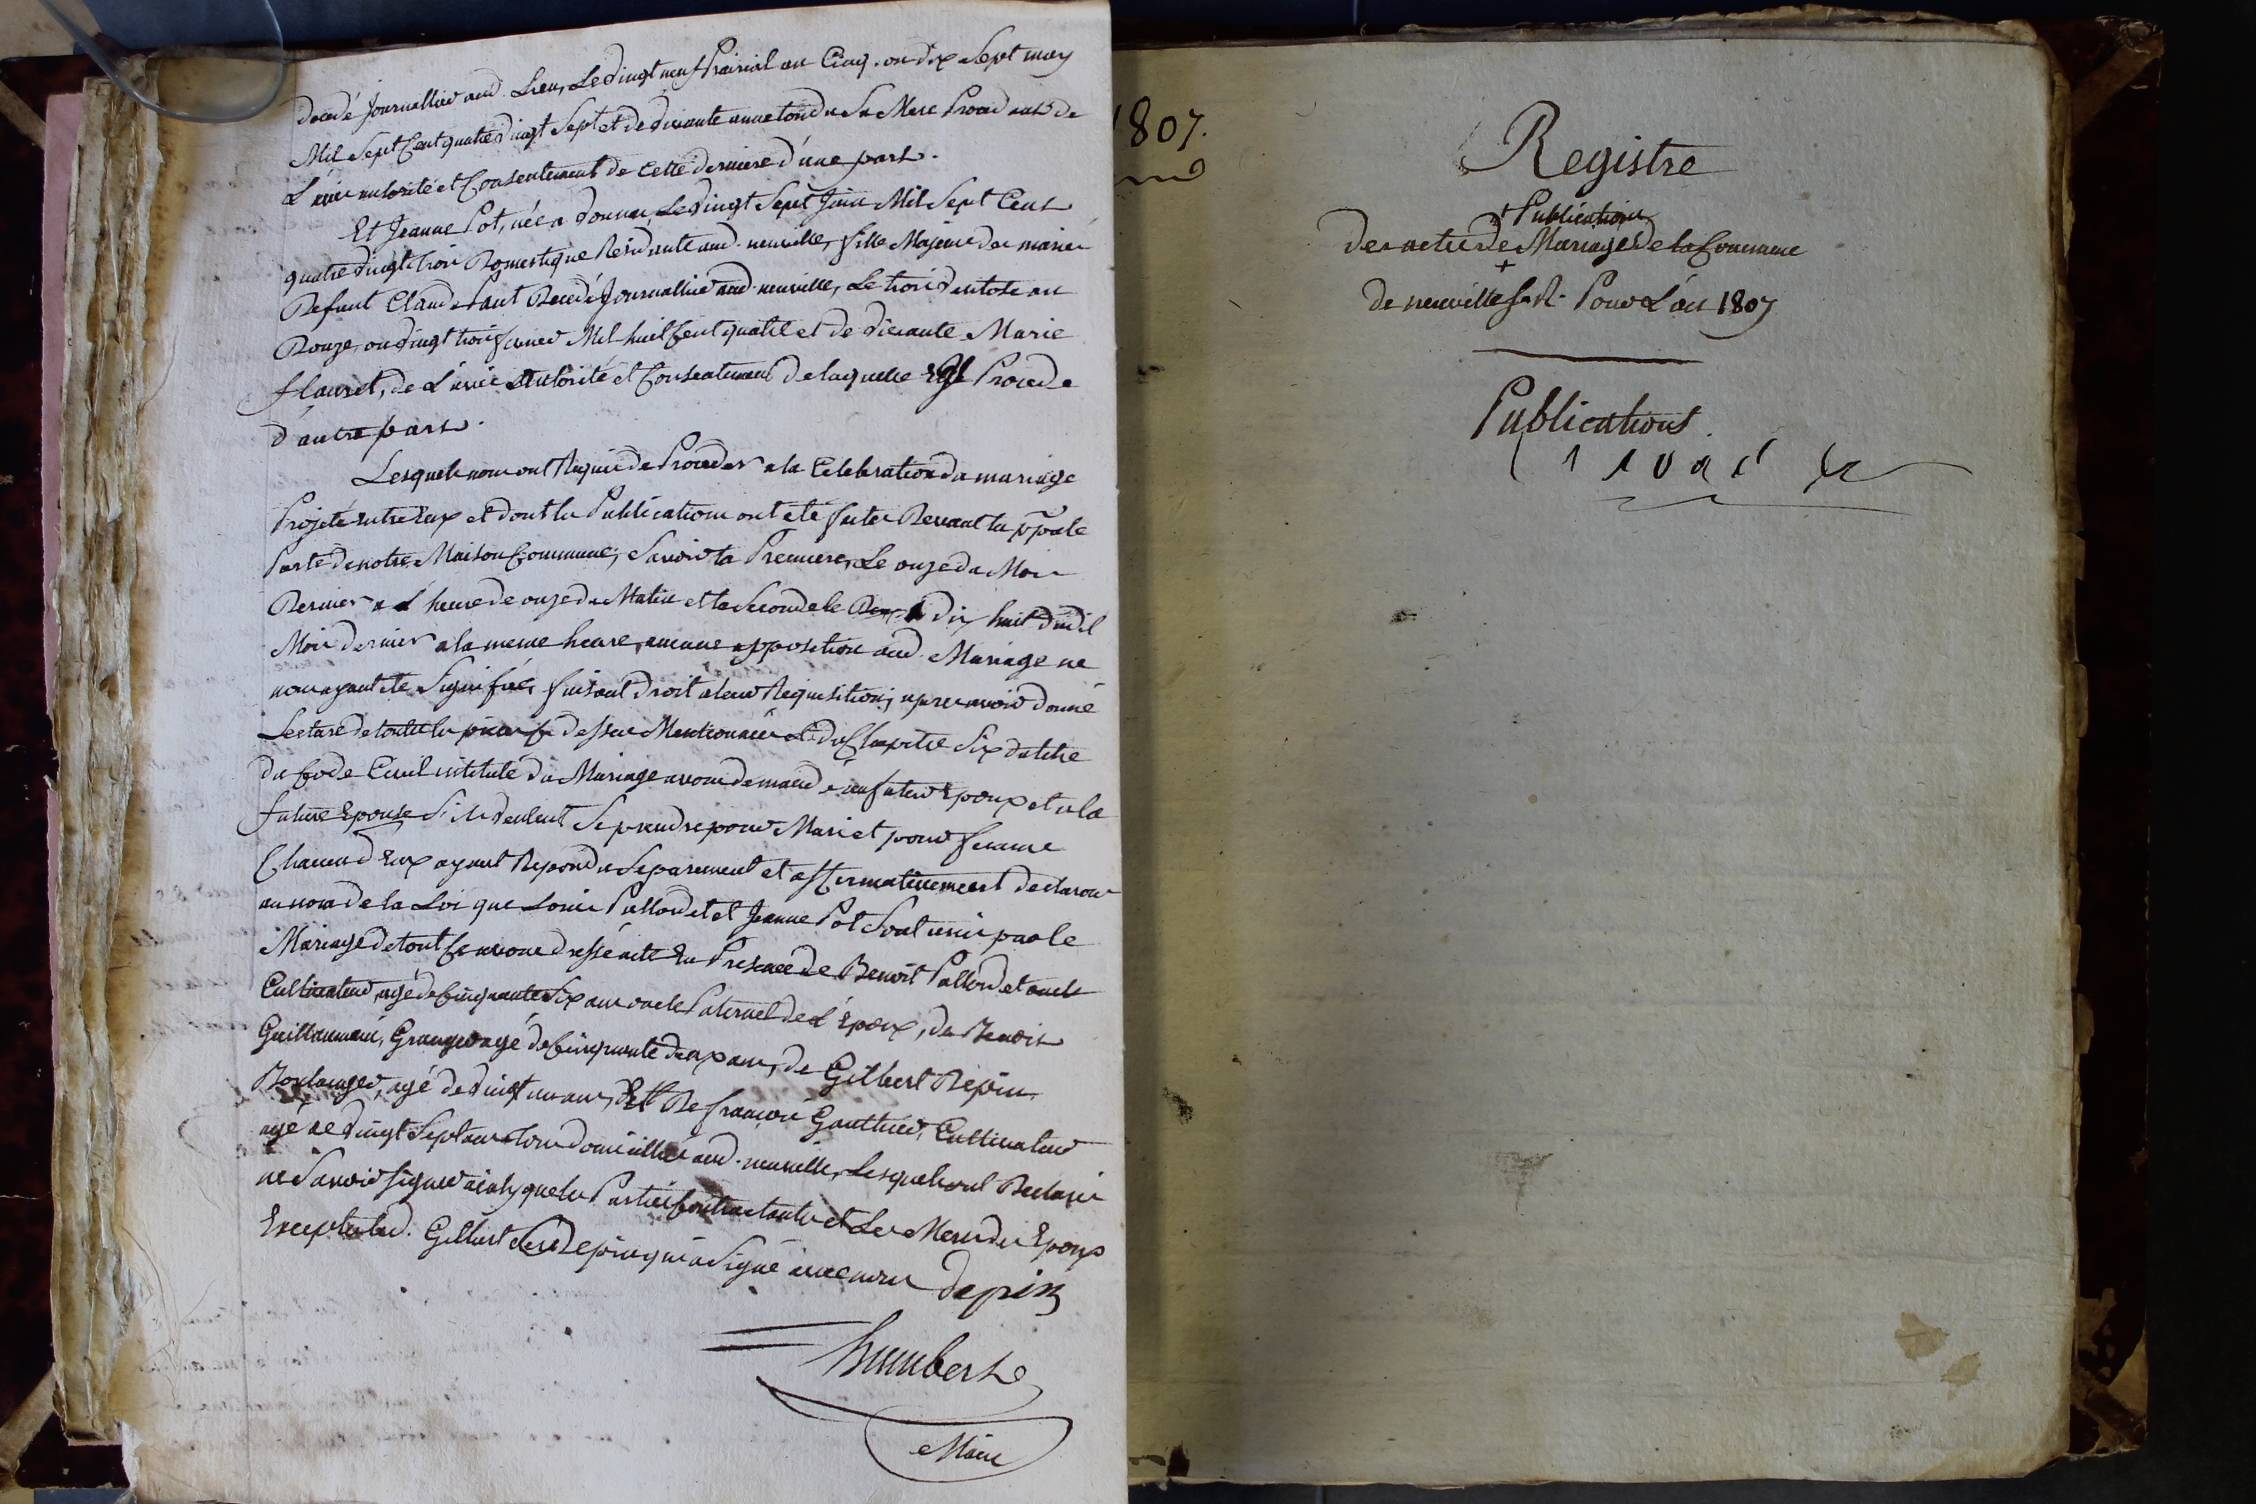 decedé Journallier aud. Lieu, Le vingt neuf Prairial an Cinq. ou dix Sept may
Mil Sept Cent quatre vingt Sept et de vivante sa Mere Procedant de
L'avis autorité et Consentement de Cette derniere d'une part.
Et Jeanne Pot, née a Le vingt Sept Juin Mil Sept Cent
quatre vingt trois Domestique Residante aud. neuville, fille Majeure de
Defunt Claude Decedé Journallier aud. neuville, Le trois ventose an
Douze, ou vingt trois fevrier Mil huit Cent quatre et de vivante Marie
flauret, de L'avis Autorité et Consentement de laquelle Elle Procede
d'autre part.
Lesquels nous ont Requis de Proceder a la Celebration du mariage
Projeté entre Eux et dont les Publications ont été faites Devant la ppale
Porte de notre Maison Commune; Savoir la Premiere, Le onze du Mois
Dernier a L'heure de onze du Matin et la Seconde le dix huit dudit
Mois dernier a la meme heure, aucune opposition aud. Mariage ne
nous ayant été Signifiée, faisant droit a leur Requisition; apres avoir donné
Lecture de toutes les pieces Ci dessus Mentionnées et du Chapitre Six du titre
du Code Civil intitulé du Mariage avons demandé au futur Epoux et a la
future Epouse S'ils veulent Se prendre pour Mari et pour femme
Chacun d'Eux ayant Repondu Separement et affirmativement declarons
au nom de la Loi que Louis Pallordet et Jeanne Pot Sont unis par le
Mariage de tout Ce avons dressé acte En Presence de Benoit Pallordet
Cultivateur, agé de Cinquante Six ans oncle Paternel de L'Epoux, de Benoit
Guillaumin, Granger agé de Cinquante deux ans, de Gilbert Depin
Boulanger, agé de vingt un ans, Et De francois Gauthier, Cultivateur
agé de vingt Sept ans tous domiciliés aud. neuville, Lesquels ont Declaré
ne Savoir Signer ainsy que les Parties Contractantes et Les Meres des Epoux
Excepté led. Gilbert Depin qui a Signé avec nous depin
humbert
Maire
1807.
Registre
et Publications
des actes de Mariages de la Commune
+
de neuville Pour L'an 1807
Publications